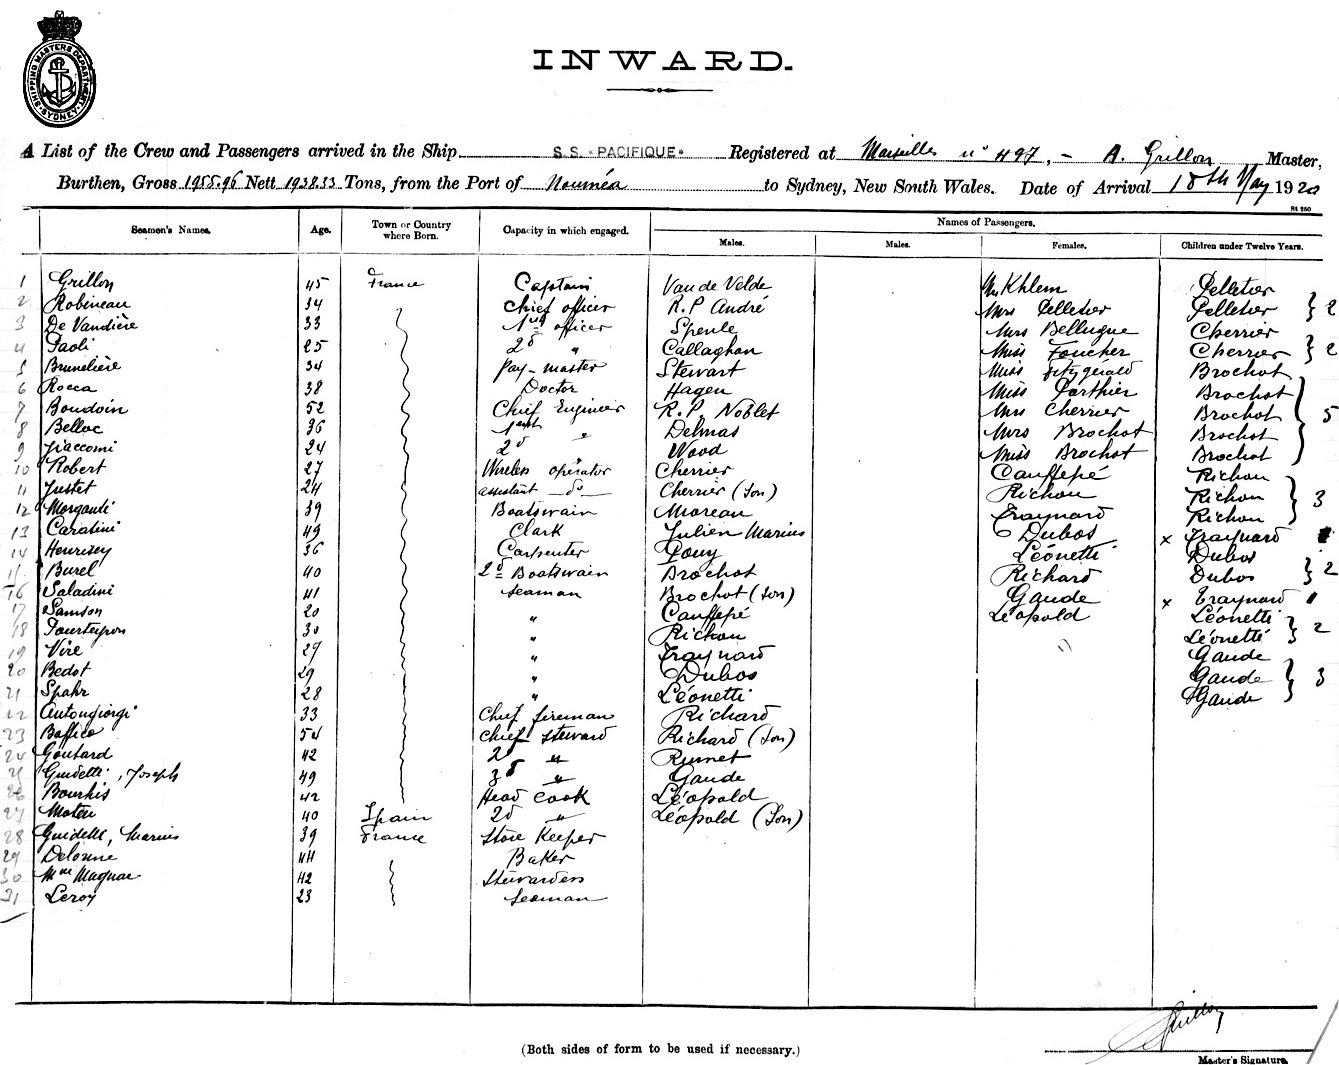 SHIPPING MASTERS DEPARTMENT
SYDNEY
INWARD.
A List of the Crew and Passengers arrived in the Ship S.S. "PACIFIQUE" Registered at Marseille n° 497, - A. Grillon Master,
Burthen, Gross 1955.96 Nett 1938.33 Tons, from the Port of Nouméa to Sydney, New South Wales. Date of Arrival 18th May 1920
St 250
Seamen's Names. Age. Town or Country where Born. Capacity in which engaged. Names of Passengers.
Males. Males. Females. Children under Twelve Years.
1 Grillon 45 France Captain Van de Velde Mrs Khlem Pelletier
2 Robineau 34 Chief officer R.P André Mrs Pelletier Pelletier } 2
3 De Vandière 33 1st officer Spenle Mrs Bellugue Cherrier
4 Paoli 25 2d " Callaghan Miss Foucher Cherrier } 2
5 Brunelière 34 Pay-master Stewart Miss Fitzgerald Brochot
6 Rocca 38 Doctor Hagen Miss Parthier Brochot
7 Boudoin 52 Chief Engineer R.P. Noblet Mrs Cherrier Brochot } 5
8 Belloc 36 1st " Delmas Mrs Brochot Brochot
9 Giaccomi 24 2d Wood Miss Brochot Brochot
10 Robert 27 Wireless operator Cherrier Cauffepé Richon
11 Justet 24 assistant do Cherrier (Son) Richon Richon } 3
12 Morganti 39 Boatswain Moreau Traynard Richon
13 Caratini 49 Clark Julien Marius Dubos x Traynard
14 Henrisey 36 Carpenter Gouy Léonetti Dubos
15 Burel 40 2d Boatswain Brochot Richard Dubos } 2
16 Saladini 41 Seaman Brochot (Son) Gaude x Traynard
17 Samson 20 " Cauffepé Léopold Léonetti
18 Tourteyron 30 " Richon Léonetti } 2
19 Vire 27 " Traynard Gaude
20 Bedot 29 " Dubos Gaude } 3
21 Spahr 28 " Léonetti Gaude
22 Antongiorgi 33 Chief fireman Richard
23 Baffico 54 Chief steward Richard (Son)
24 Goutard 42 2d " Rumet
25 Guidetti, Joseph 49 3d " Gaude
26 Bourhis 42 Head cook Léopold
27 Mateu 40 Spain 2d " Léopold (Son)
28 Guidetti, Marius 39 France Store Keeper
29 Delorme 44 Baker
30 Mme Magnac 42 Stewardess
31 Leroy 23 Seaman
Grillon
(Both sides of form to be used if necessary.)
Master's Signature.